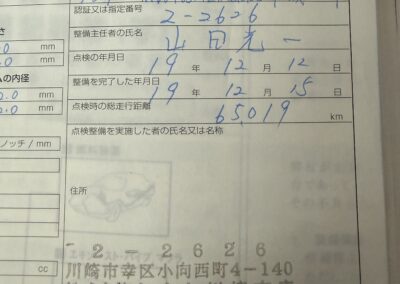 認証又は指定番号
2-2626
整備主任者の氏名
山田光一
点検の年月日
19 年 12 月 12 日
整備を完了した年月日
19 年 12 月 15 日
点検時の総走行距離
65,019 km
点検整備を実施した者の氏名又は名称
住所
-2-2626
川崎市幸区小向西町4-140
mm
mm
ムの内径
mm
mm
ノッチ/mm
cc